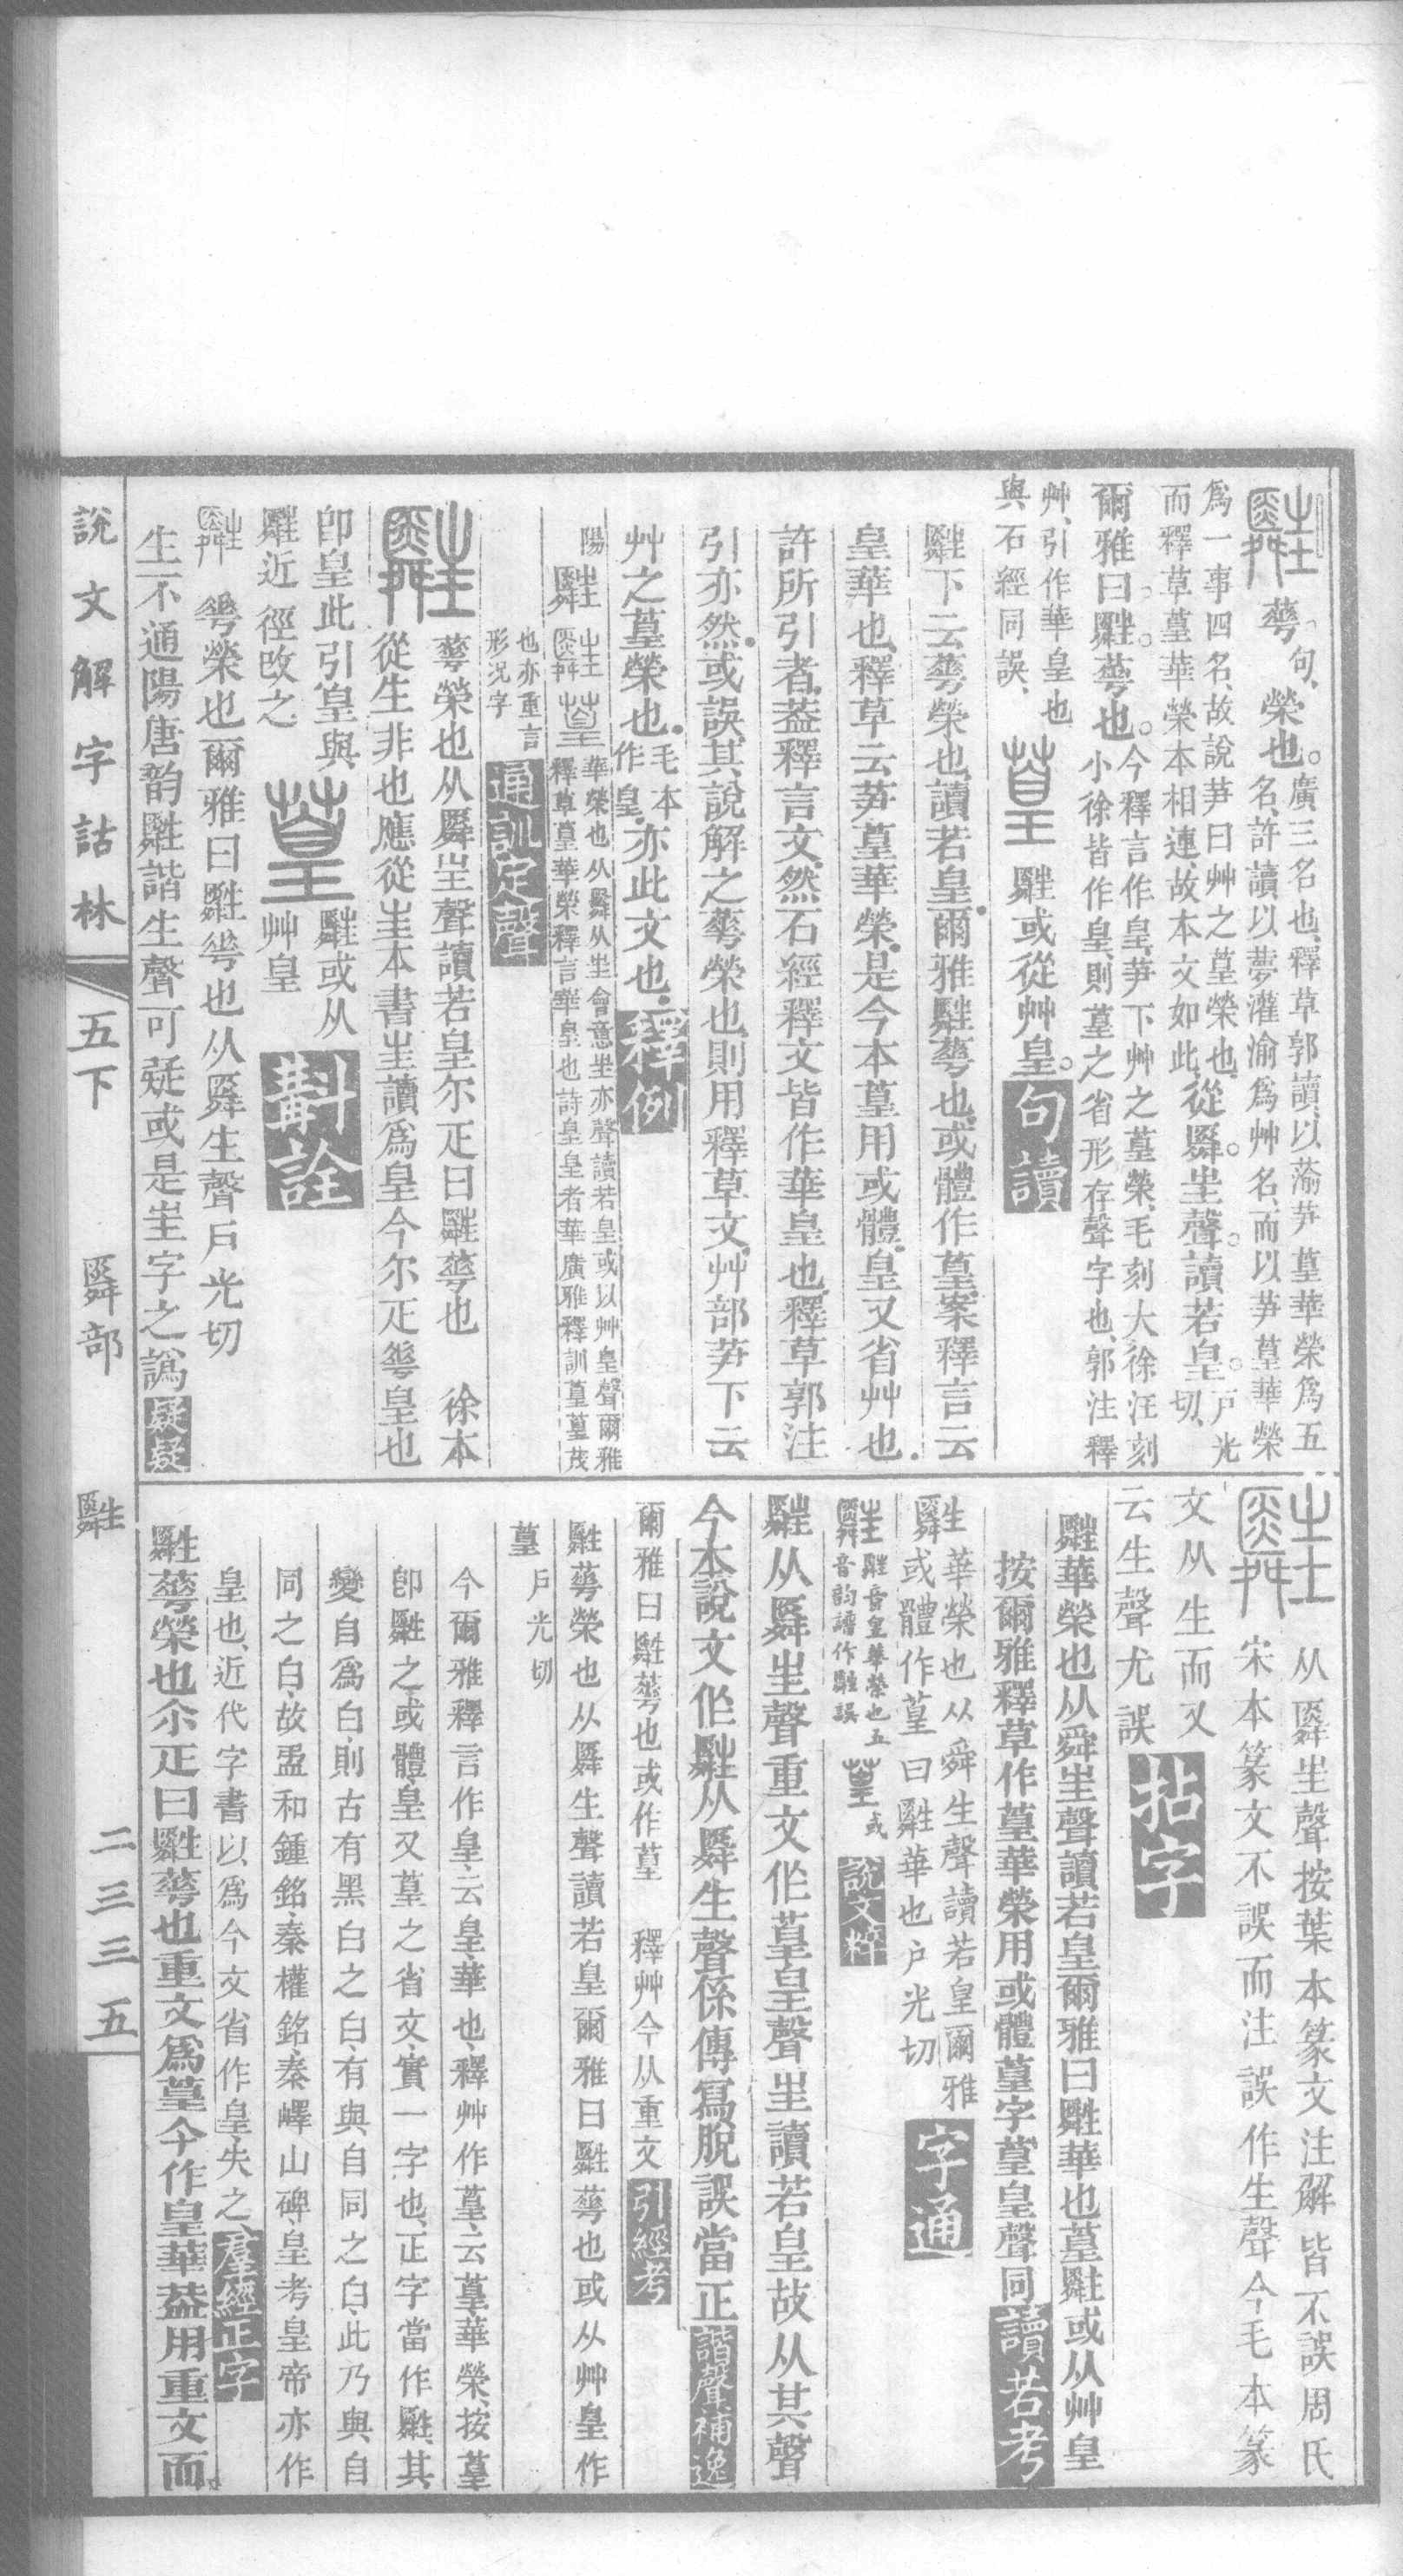 𦿏句榮也廣三名也釋草郭讀以蕍芛葟華榮爲五
名許讀以夢灌渝爲艸名而以芛葟華榮
爲一事四名故說芛曰艸之葟榮也從䑞㞷聲讀若皇戶光
而釋草葟華榮本相連故本文如此切
爾雅曰䑟蕚也今釋言作皇芛下艸之葟榮毛刻大徐汪刻
小徐皆作皇則葟之省形存聲字也郭注釋
艸引作華皇也
與石經同誤
葟 䑟或從艸皇句讀
䑟下云蕚榮也讀若皇爾雅䑟蕚也或體作葟案釋言云
皇華也釋草云芛葟華榮是今本葟用或體皇又省艸也
許所引者葢釋言文然石經釋文皆作華皇也釋草郭注
引亦然或誤其說解之蕚榮也則用釋草文艸部芛下云
艸之葟榮也毛本作皇亦此文也釋例
陽䑟 葟 華榮也从䑞从㞷會意㞷亦聲讀若皇或以艸皇聲爾雅
釋草葟華榮釋言華皇也詩皇皇者華廣雅釋訓葟葟茂
也亦重言
形況字
通訓定聲
蕚榮也从䑞㞷聲讀若皇尔疋曰䑟蕚也 徐本
從生非也應從㞷本書㞷讀爲皇今尔疋蕚皇也
卽皇此引皇與
䑟近徑改之
葟 䑟或从
艸皇
斠詮
蕚榮也爾雅曰䑟蕚也从䑞生聲戶光切
生不通陽唐韵䑟諧生聲可疑或是㞷字之譌疑疑
从䑞㞷聲按葉本篆文注解皆不誤周氏
宋本篆文不誤而注誤作生聲今毛本篆
文从生而又
云生聲尤誤
拈字
䑟華榮也从舜㞷聲讀若皇爾雅曰䑟華也葟䑟或从艸皇
按爾雅釋草作葟華榮用或體葟字葟皇聲同讀若考
䑟華榮也从舜生聲讀若皇爾雅
或體作葟曰䑟華也戶光切
字通
䑟音皇華榮也五
音韵譜作䑟誤
葟或
說文粹
䑟从䑞㞷聲重文作葟皇聲㞷讀若皇故从其聲
今本說文作䑟从䑞生聲係傳寫脫誤當正諧聲補逸
爾雅曰䑟蕚也或作葟 釋艸今从重文引經考
䑟蕚榮也从䑞生聲讀若皇爾雅曰䑟蕚也或从艸皇作
葟戶光切
今爾雅釋言作皇云皇華也釋艸作葟云葟華榮按葟
卽䑟之或體皇又葟之省文實一字也正字當作䑟其
變自爲白則古有黑白之白有與自同之白此乃與自
同之白故盄和鍾銘秦權銘秦嶧山碑皇考皇帝亦作
皇也近代字書以爲今文省作皇失之羣經正字
䑟蕚榮也尒疋曰䑟蕚也重文爲葟今作皇華葢用重文而
說文解字詁林 五下 䑞部 䑟 二三三五